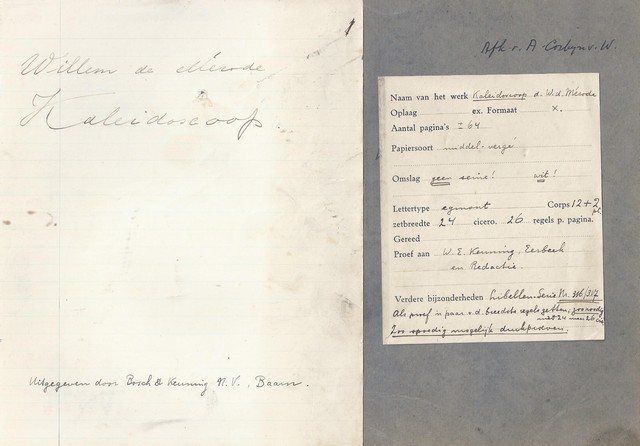 Willem de Mérode
Kaleidoscoop
Uitgegeven door Bosch & Keuning N.V., Baarn.
Afk. v. A. Corbijn v. W.
Naam van het werk Kaleidoscoop d. W.d. Mérode
Oplaag ex. Formaat x.
Aantal pagina's ± 64
Papiersoort middel-vergé
Omslag geen serie! wit!
Lettertype egmont Corps 12 + 2 pt.
zetbreedte 24 cicero. 26 regels p. pagina.
Gereed
Proef aan W. E. Keuning, Eerbeek
en Redactie.
Verdere bijzonderheden Libellen-Serie Nr. 316/317
Als proef 'n paar v.d. breedste regels zetten; zoo noodig
niet 24 maar 26 cic.
Zoo spoedig mogelijk drukproeven.